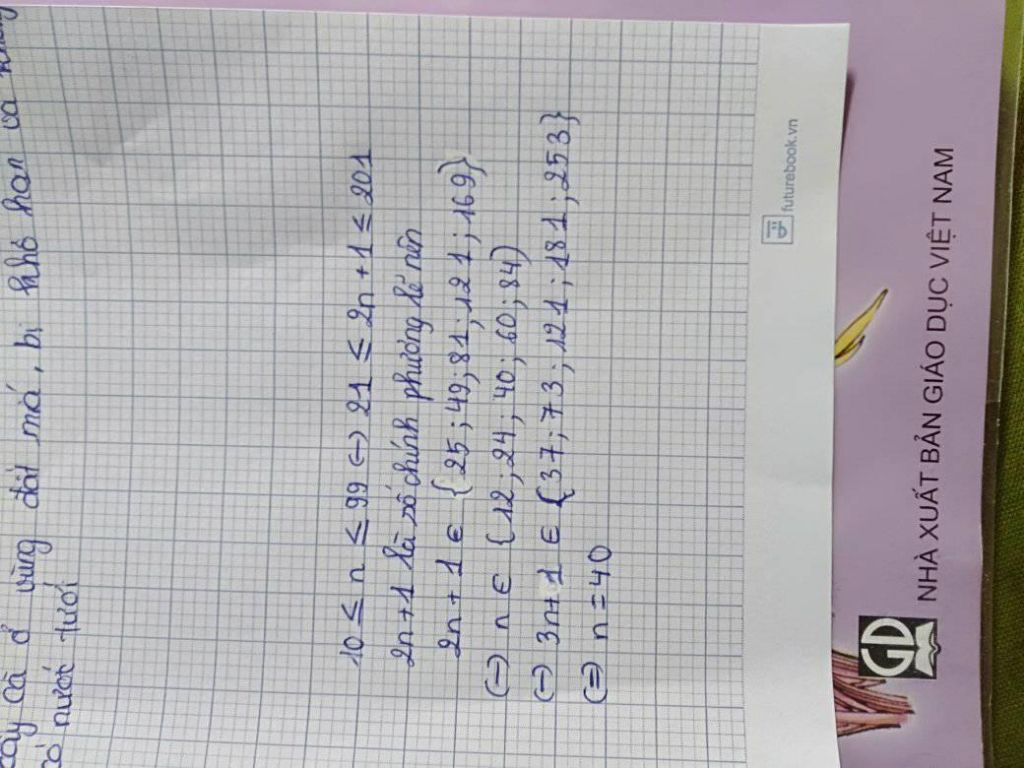 cây cà ở vùng đất má, bị khô hạn và
có nước tưới
10 ≤ n ≤ 99 (-) 21 ≤ 2n + 1 ≤ 201
2n+1 là số chính phương lẻ nên
2n + 1 ∈ {25 ; 49 ; 81 ; 121 ; 169}
(-) n ∈ {12 ; 24 ; 40 ; 60 ; 84)
(-) 3n+1 ∈ {37 ; 73 ; 121 ; 181 ; 253}
(=) n = 40
futurebook.vn
GD
NHÀ XUẤT BẢN GIÁO DỤC VIỆT NAM